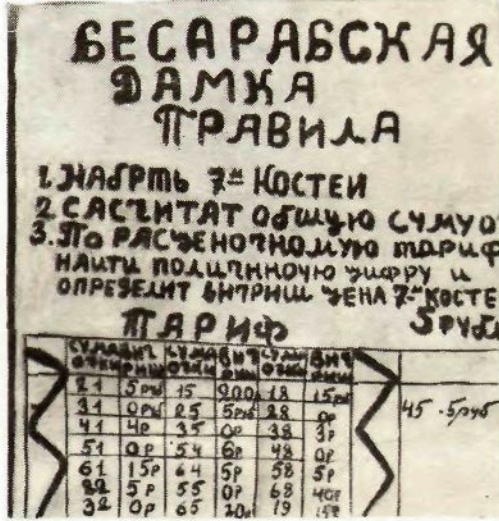 БЕСАРАБСКАЯ
ДАМКА
ПРАВИЛА
1. НАБРТЬ 7-Ь КОСТЕИ
2 САСЧИТАТ ОБЩУЮ СУМУ О
3. ПО РАСЦЕНОЧНОМУЮ ТАРИФ
НАИТИ ПОЛИЧИННОЧУЮ ЦИФРУ И
ОПРЕДЕЛИТ ВИТРИШ ЦЕНА 7-Ь КОСТЕ
ТАРИФ 5 РУБЛ
СУМА ОЧКИ СУМА ОЧКИ СУМА ОЧКИ
21 5 РУБ 15 200 18 15
31 0 РУБ 25 5 РУБ 28 0Р
41 4Р 35 0Р 38 3Р 45 - 5 РУБ
51 0Р 54 6Р 48 0Р
61 15Р 64 5Р 58 5Р
22 5Р 55 0Р 68 40Р
32 0Р 65 20 19